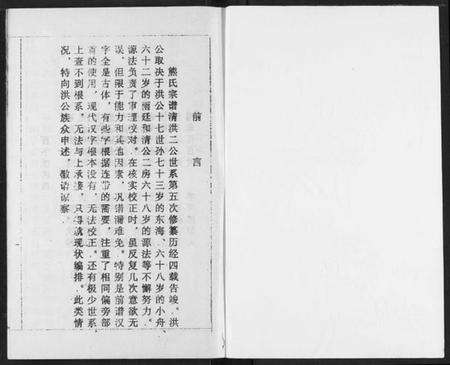 前言
熊氏宗谱清洪二公世系第五次修纂历经四载告竣。洪
公取决于洪公十七世孙七十三岁的东海、六十八岁的小舟
六十二岁的 廷和清公二房六十八岁的源法等不懈努力。
源法负责了审理校对。在核实校正时，虽反复几次意欲无
误，但限于能力和其他因素，讥谱漏难免。特别是前谱汉
字全是古体，有些字根据连带的需要，注重了相同偏旁部
首的使用，现代汉字根本没有，无法校正。还有极少世系
上查不到根系，无法与上承接，只得就现状编排。此类情
况，特向洪公族众申述，敬请谅察。